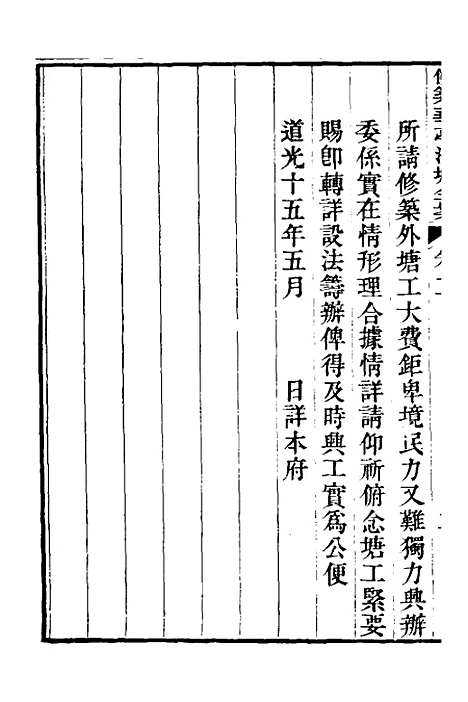 所請修築外塘工大費鉅卑境民力又難獨力興辦
委係實在情形理合據情詳請仰祈俯念塘工緊要
賜卽轉詳設法籌辦俾得及時興工實爲公便
道光十五年五月　　　日詳本府